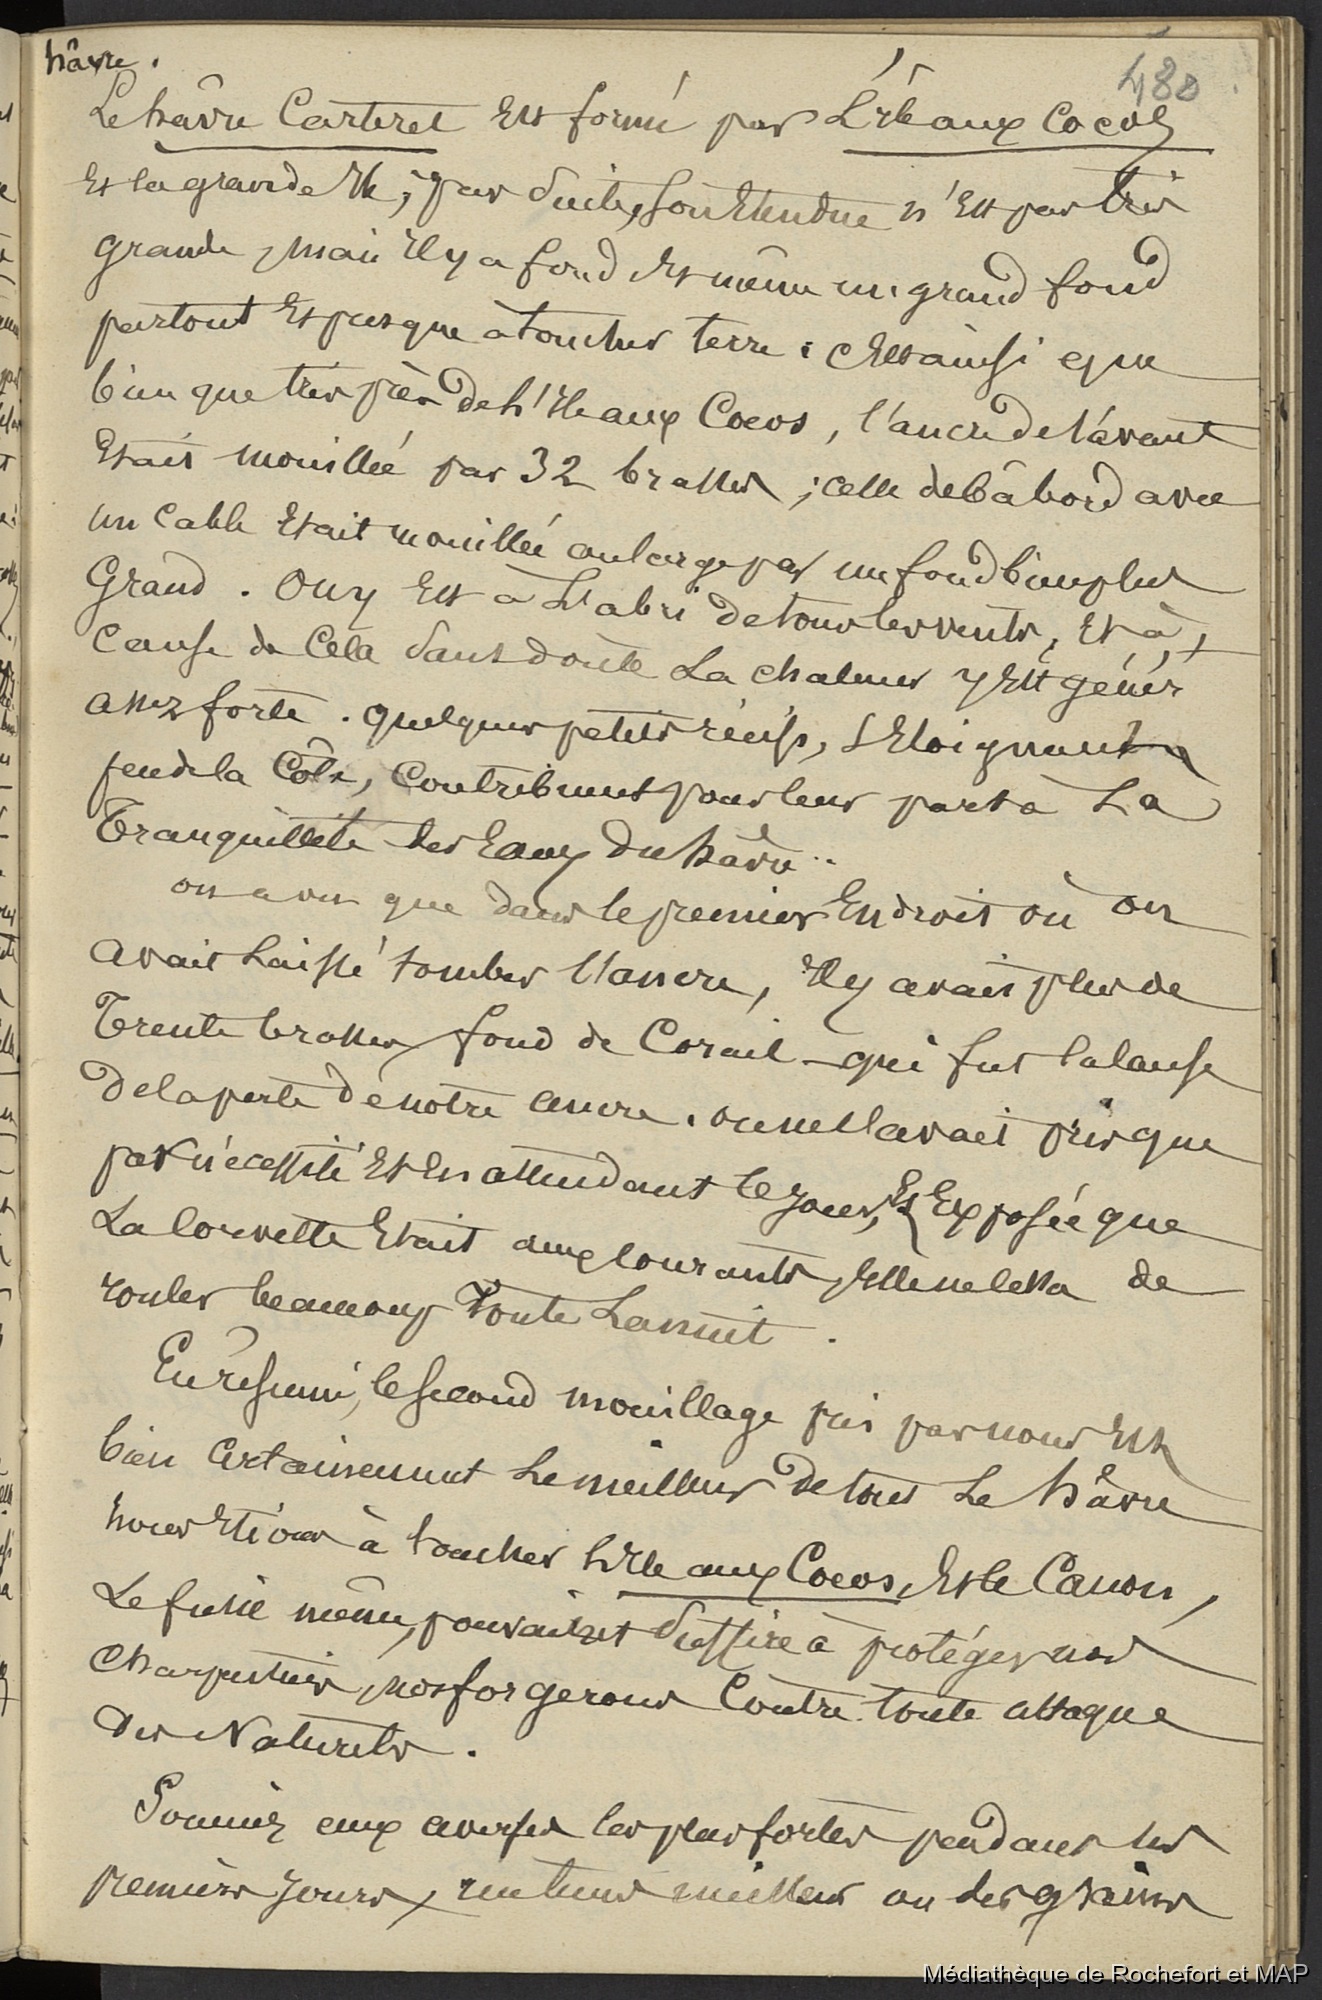 hâvre.
480
Le hâvre Carteret Est formé par L'Ile aux Cocos
Et la grande Ile ; par suite, son Etendue n'Est pas très
grande, mais Il y a fond Et même un grand fond
partout Et presque à toucher terre : C'Est ainsi que
bien que très près de l'Ile aux Cocos, l'ancre de l'avant
Etait mouillée par 32 brasses ; celle de bâbord avec
un cable Etait mouillée au large par un fond bien plus
Grand. On y Est à L'abri de tous les vents, Et à
Cause de Cela sans doute La chaleur y Est génér
assez forte. quelques petits récifs, s'Eloignant
peu de la Côte, Contribuent pour leur part à La
Tranquillité des Eaux du hâvre..
on a vu que dans le premier Endroit où on
avait Laissé tomber l'ancre, Il y avait plus de
Trente brasses fond de Corail qui fut la Cause
de la perte de notre ancre. on ne l'avait pris que
par nécessité Et En attendant le jour, Et Exposée que
La Corvette Etait aux Courants, Elle ne Cessa de
rouler beaucoup Toute La nuit.
En résumé, le second mouillage pris par nous Est
bien Certainement Le meilleur de tout Le hâvre
nous Etions à toucher L'Ile aux Cocos, Et le Canon,
Le fusil même, pouvaient suffire à protéger nos
Charpentiers, nos forgerons Contre toute attaque
des Naturels.
Soumis aux averses les plus fortes pendant les
premiers jours, un tems meilleur ou des grains
Médiathèque de Rochefort et MAP